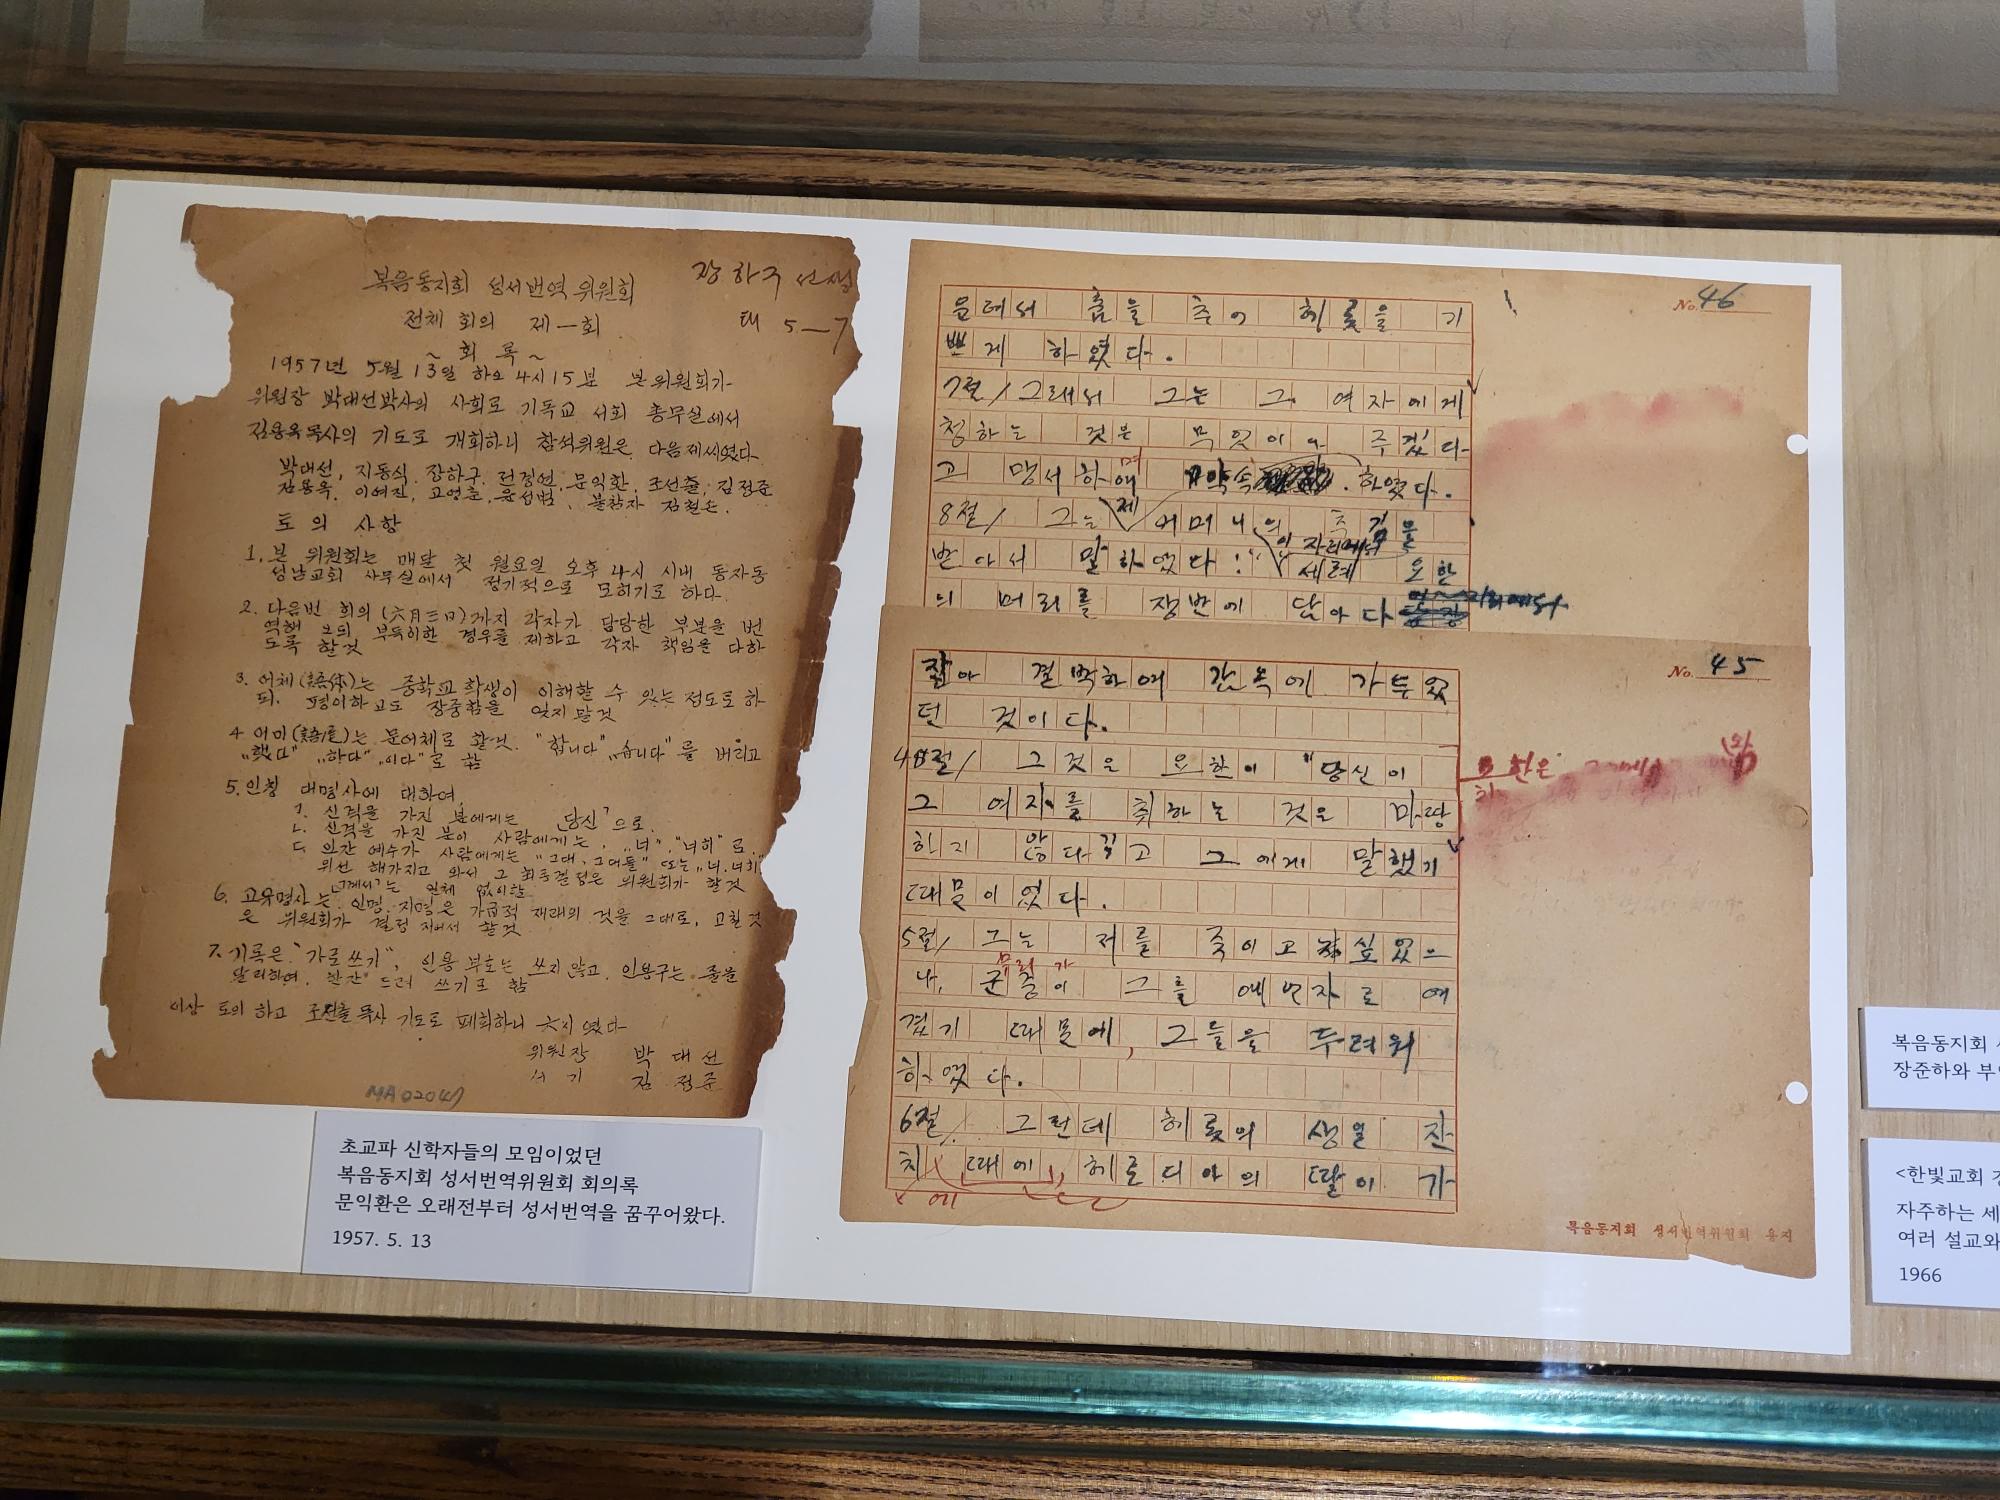 복음동지회 성서번역 위원회
장하구 선생
전체 회의 제一회
태 5—7
~ 회 록 ~
1957년 5월 13일 하오 4시 15분 본 위원회가
위원장 박대선박사의 사회로 기독교 서회 총무실에서
김용옥목사의 기도로 개회하니 참석위원은 다음 제씨였다
박대선, 지동식, 장하구, 전경연, 문익환, 조선출, 김정준
김용옥, 이여진, 고영춘, 윤성범, 불참자 김철손.
토의 사항
1. 본 위원회는 매달 첫 월요일 오후 4시 시내 동자동
성남교회 사무실에서 정기적으로 모히기로 하다.
2. 다음번 회의 (六月三日)까지 각자가 담당한 부분을 번
역해 오되 부득이한 경우를 제하고 각자 책임을 다하
도록 할것
3. 어체(語体)는 중학교 학생이 이해할 수 있는 정도로 하
되, 평이하고도 장중함을 잊지 말것
4 어미(語尾)는 문어체로 할것. "합니다" "습니다"를 버리고
"했다" "한다" "이다"로 함
5. 인칭 대명사에 대하여,
ㄱ. 신격을 가진 분에게는 "당신"으로.
ㄴ. 신격을 가진 분이 사람에게는, "너", "너히"로.
ㄷ. 인간 예수가 사람에게는 "그대, 그대들" 또는 "너, 너히"
위선 해가지고 와서 그 최종결정은 위원회가 할것
"께서"는 일체 없이함
6. 고유명사는 인명, 지명은 가급적 재래의 것을 그대로, 고칠것
은 위원회가 결정 지어서 할것
7. 기록은 "가로쓰기", 인용 부호는 쓰지 않고, 인용구는 줄을
달리하여, 한간 드려 쓰기로 함
이상 토의 하고 조선출 목사 기도로 폐회하니 六지였다
위원장 박 대 선
서 기 김 정 준
MA02047
초교파 신학자들의 모임이었던
복음동지회 성서번역위원회 회의록
문익환은 오래전부터 성서번역을 꿈꾸어왔다.
1957. 5. 13
No. 46
운데서 춤을 추어 헤롯을 기
쁘게 하였다.
7절/ 그래서 그는 그 여자에게
청하는 것은 무엇이나 주겠다
고 맹서하며 약속 하였다.
8절/ 그는 제 어머니의 추김을
받아서 말하였다: "이 자리에서
세례 요한
의 머리를 쟁반에 담아 다
No. 45
잡아 결박하여 감옥에 가두었
던 것이다.
4절/ 그것은 요한이 "당신이
요한은
그 여자를 취하는 것은 마땅
하지 않다"고 그에게 말했기
때문이었다.
5절/ 그는 저를 죽이고 싶었으
무리가
나, 군중이 그를 예언자로 여
겼기 때문에, 그들을 두려워
하였다.
6절 그런데 헤롯의 생일 잔
치 때에, 헤로디아의 딸이 가
에
복음동지회 성서번역위원회 용지
복음동지회
장준하와 부
<한빛교회
자주하는 세
여러 설교와
1966